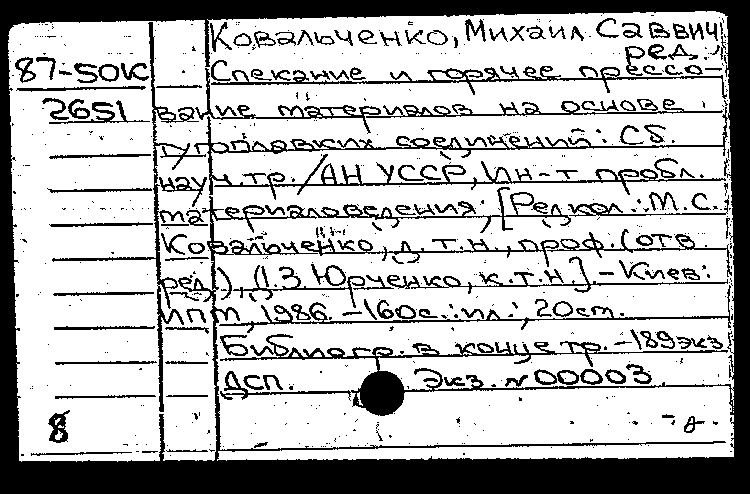 Ковальченко, Михаил Саввич
ред.
87-50К Спекание и горячее прессо-
2651 вание материалов на основе
тугоплавких соединений: Сб.
науч. тр. /АН УССР, Ин-т пробл.
материаловедения; [Редкол.: М.С.
Ковальченко, д.т.н., проф. (отв.
ред.), Д.З. Юрченко, к.т.н.]. - Киев:
ИПМ, 1986. - 160с.: ил.; 20см.
Библиогр. в конце тр. - 189экз
ДСП. Экз. №00003.
8